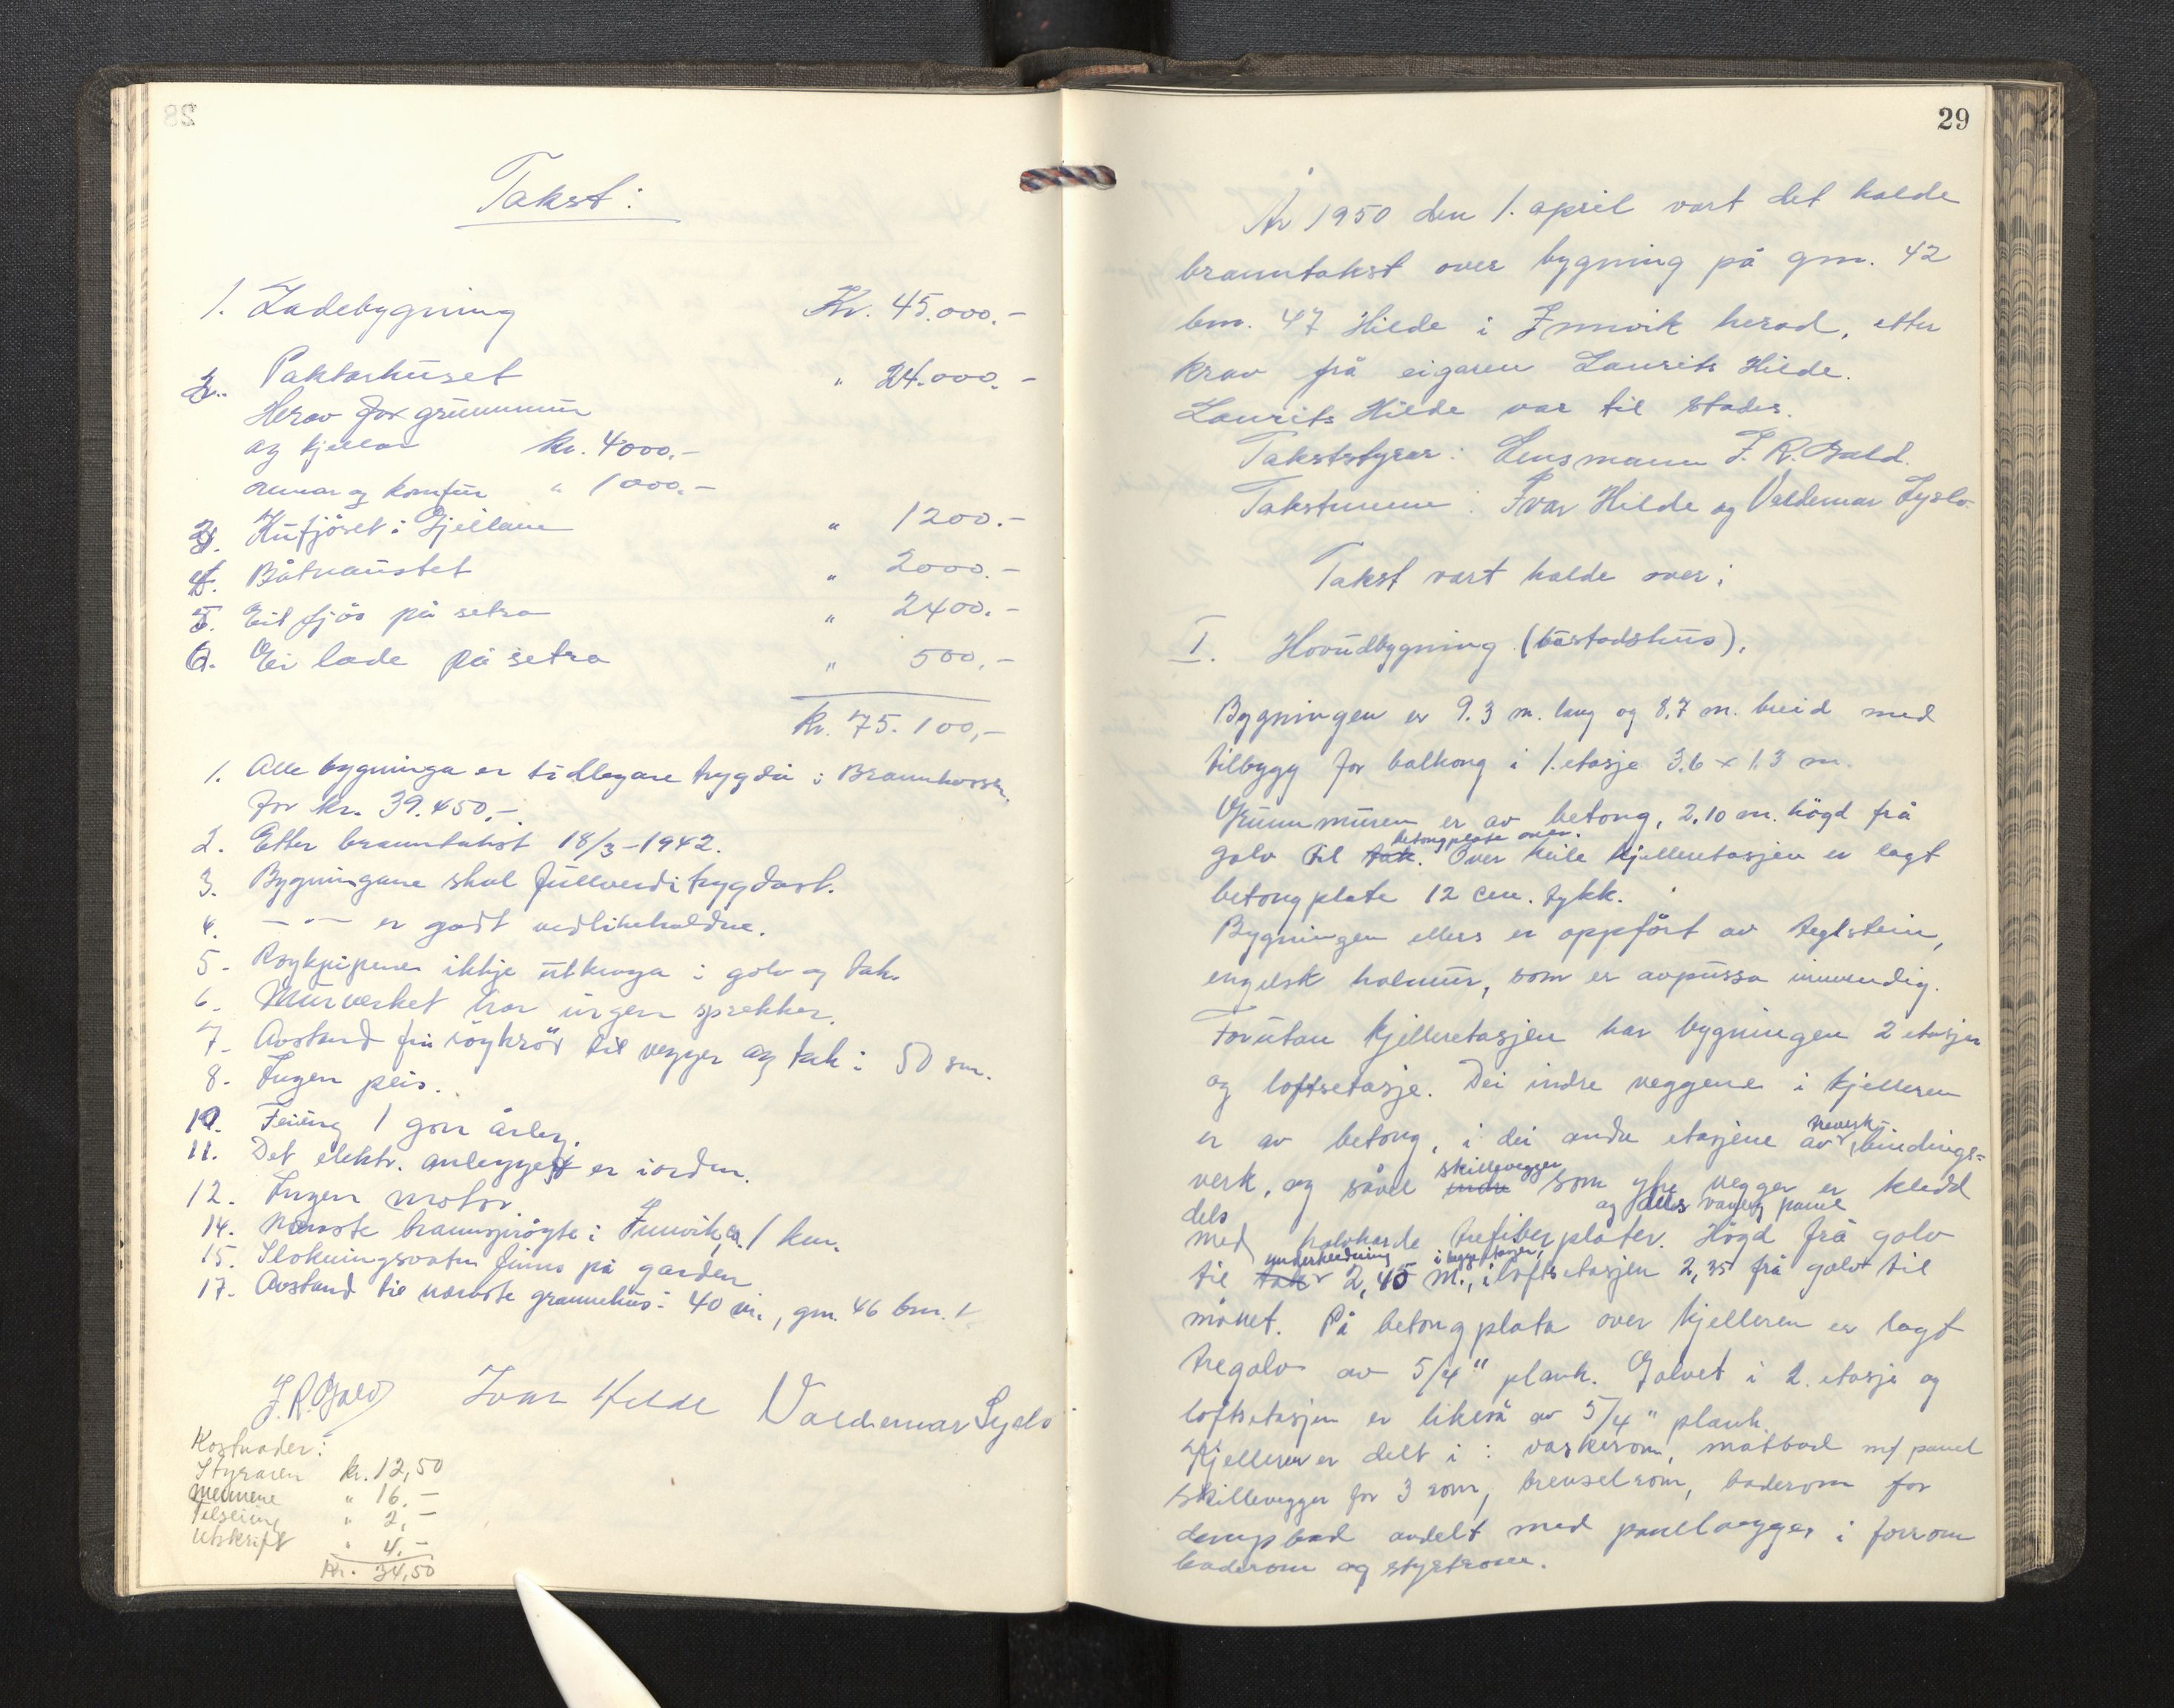 Takst:
1. Ladebygning Kr. 45.000.-
2. Paktarhuset " 24.000.-
Herav for grunnmur
og kjellar kr. 4000.-
omnar og komfür " 1000.-
3. Kufjöset i Gjellane " 1200.-
4. Båtnaustet " 2000.-
5. Eit fjös på setra " 2400.-
6. Ei lade på setra " 500,-
kr. 75.100,-
1. Alle bygninga er tidlegare trygda i Brannkassa
for kr. 39.450,-
2. Etter branntakst 18/3-1942.
3. Bygningane skal fullverditrygdast.
4. — " — er godt vedlikehaldne.
5- Röykpipene ikkje utkraga i golv og tak.
6- Murverket har ingen sprekker.
7- Avstand frå röykrör til vegger og tak: 50 sm.
8- Ingen peis.
10. Feiing 1 gon årleg.
11. Det elektr. anlegget er iorden.
12. Ingen motor
14. Næraste brannspröyte i Innvik, ca. 1 km.
15. Slökningsvatn finns på garden
17. Avstand til næraste grannehus: 40 m., gnr. 46 bnr. 1
J. R. Gald Ivar Hilde Valdemar Lyslo
Kostnader:
Styraren kr. 12,50
Mennene " 16.-
Tilseiing " 2,-
Utskrift " 4.-
Kr. 34,50
29
År 1950 den 1. april vart det halde
branntakst over bygning på gnr. 42
bnr. 47 Hilde i Innvik herad, etter
krav frå eigaren Laurits Hilde.
Laurits Hilde var til stades.
Takststyrar: Lensmann J. R. Gald.
Takstmenn: Ivar Hilde og Valdemar Lyslo
Takst vart halde over:
I. Hovudbygning (bustadshus),
Bygningen er 9.3 m. lang og 8,7 m. breid med
tilbygg for balkong i 1. etasje 3,6 x 1,3 m.
Grunnmuren er av betong, 2,10 m. högd frå
golv til tak. betongplate over. Over heile kjelleretasjen er lagt
betongplate 12 cm. tykk.
Bygningen ellers er oppfört av teglstein,
engelsk holmur, som er avpussa innvendig.
Forutan kjelleretasjen har bygningen 2 etasjer
og loftsetasje. Dei indre veggene i kjelleren
er av betong, i dei andre etasjene av treverk bindings=
verk, og såvel indre skillevegger som ytre vegger er kledd
dels med halvharde trefiberplater og dels vanleg panel. Högd frå golv
til tak underkledning 2,45 m. i begge etasjer, i loftsetasjen 2,35 frå golv til
mönet. På betongplata over kjelleren er lagt
tregolv av 5/4" plank. Golvet i 2. etasje og
loftsetasjen er likeså av 5/4" plank.
Kjelleren er delt i: vaskerom, matbod m/ panel
skillevegger for 3 rom, brenselrom, baderom for
dampbad avdelt med panelvegger i forrom
baderom og styrtrom.